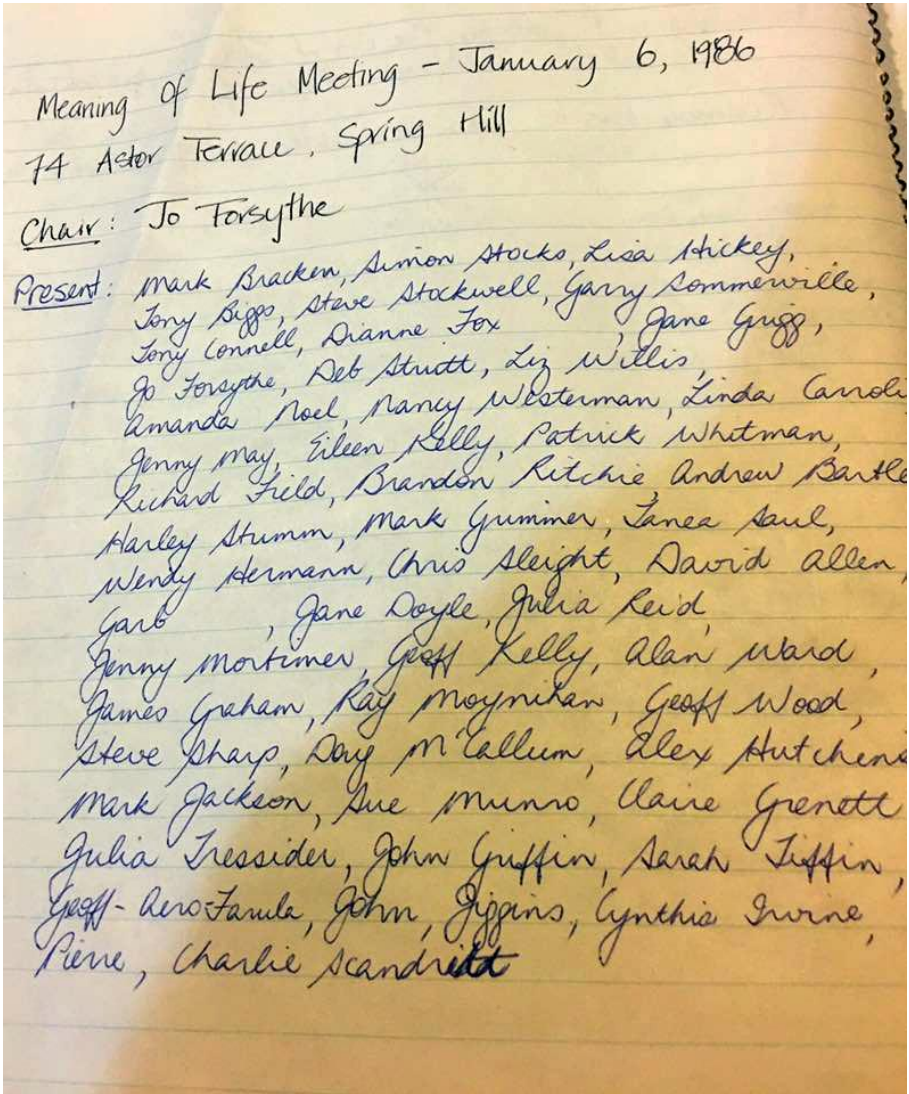 Meaning Of Life Meeting - January 6, 1986
74 Astor Terrace. Spring Hill
Chair: Jo Forsythe
Present: Mark Bracken, Simon Stocks, Lisa Hickey,
Tony Biggs, Steve Stockwell, Garry Sommerville,
Tony Connell, Dianne Fox , Jane Grigg,
Jo Forsythe, Deb Strutt, Liz Willis,
Amanda Noel, Nancy Westerman, Linda Carroli
Jenny May, Eileen Kelly, Patrick Whitman,
Richard Field, Brandon Ritchie, Andrew Bartle
Harley Stumm, Mark Gummer, Tanea Saul,
Wendy Hermann, Chris Sleight, David Allen,
Garb , Jane Doyle, Julia Reid,
Jenny Mortimer, Geoff Kelly, Alan Ward,
James Graham, Ray Moynihan, Geoff Wood,
Steve Sharp, Doug McCallum, Alex Hutchens
Mark Jackson, Sue Munro, Claire Grenett
Julia Tressider, John Griffin, Sarah Tiffin,
Geoff - Aero Farula, John, Jiggins, Cynthia Irvine,
Pierre, Charlie Scandrett